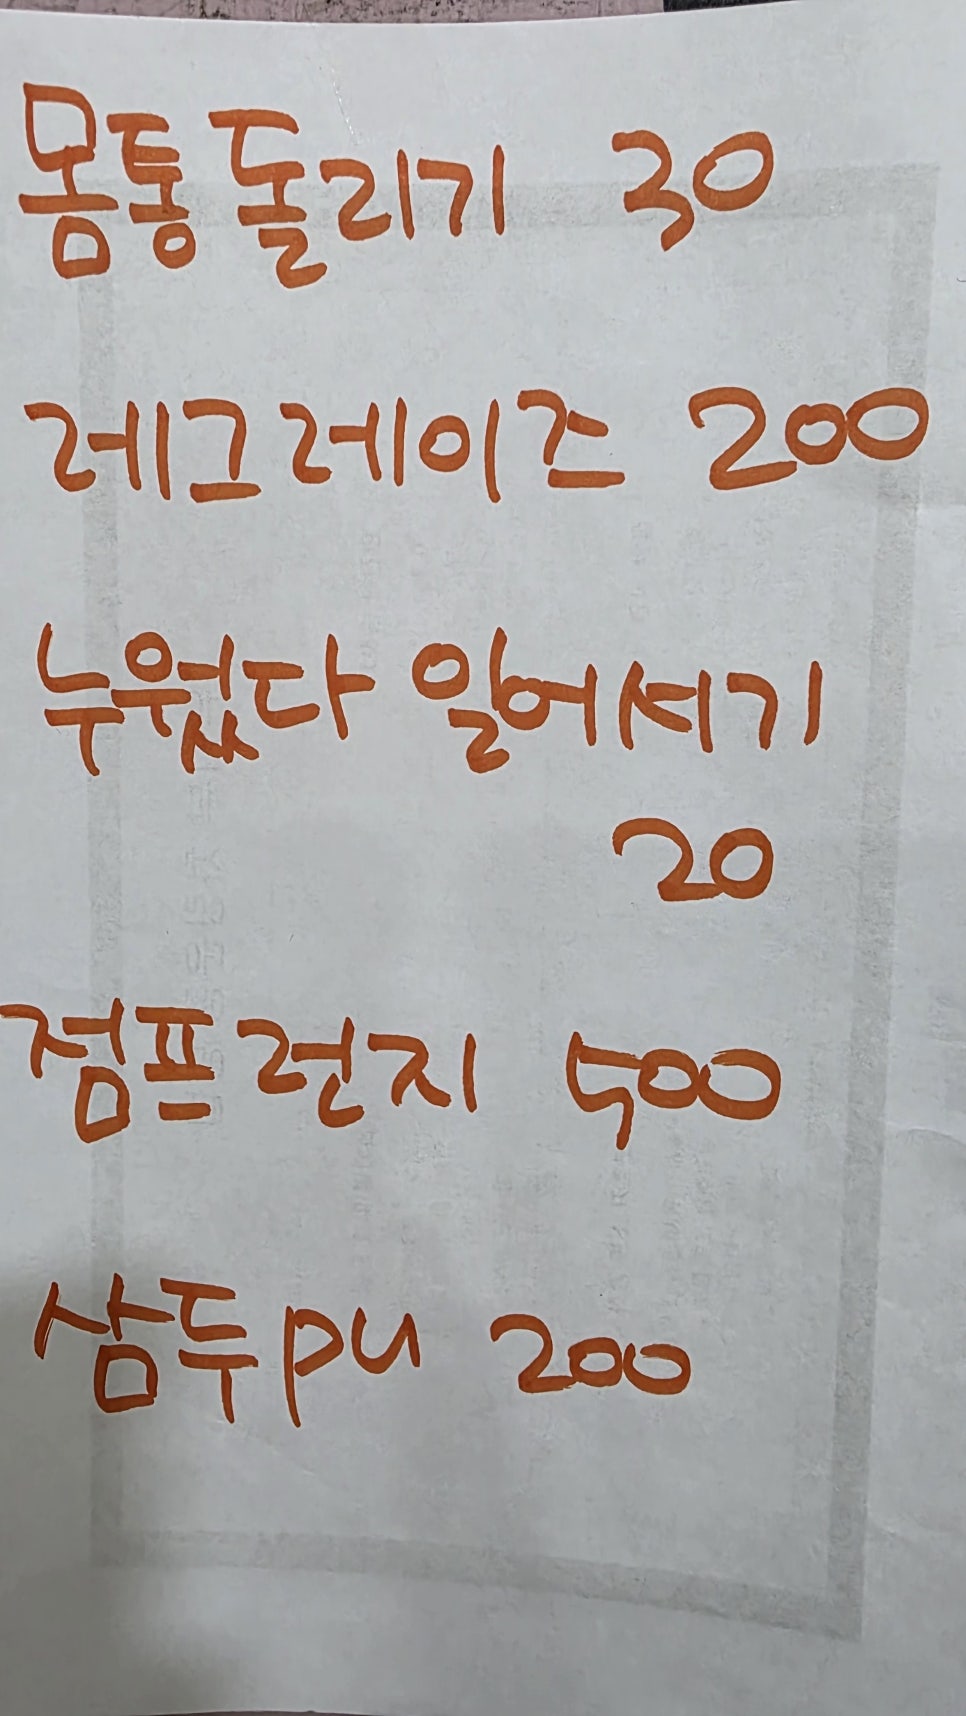 몸통돌리기 30
레그레이즈 200
누웠다 일어서기
20
점프런지 500
삼두pu 200